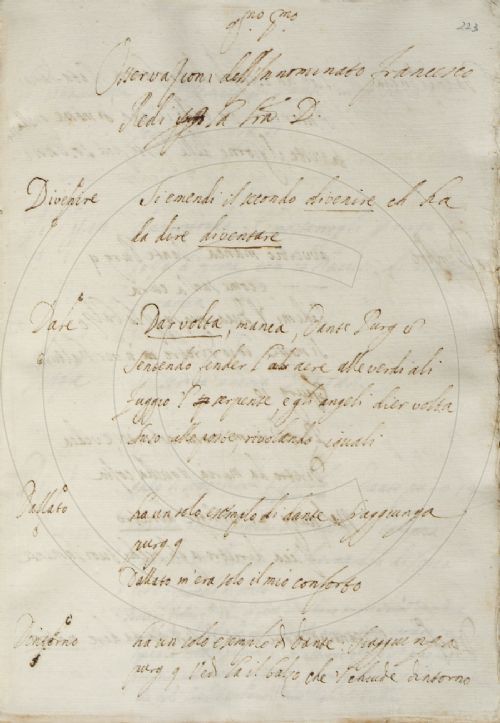 223
Osservazioni dell'Innominato francesco
Redi la D.
Divenire Si emendi il secondo divenire ed ha
da dire diventare
Dare Dar volta, manca, Dante Purg 8
Sentendo fender l' aere alle verdi ali
fuggio l' serpente, e gli angeli dier volta
suso alle poste rivolando iguali
Dallato ha un solo esemplo di dante s'aggiunga
purg. 9
Dallato m'era solo il mio conforto
Dintorno ha un solo esemplo di Dante, s'aggiunga
purg. 9 vedi la il balzo che 'l chiude dintorno